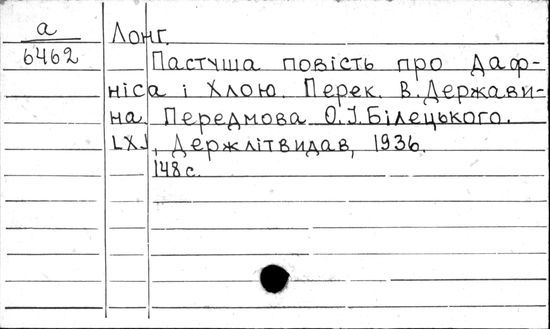 а
6462
Лонг.
Пастуша повість про Даф-
ніса і Хлою. Перек. В. Держави-
на. Передмова О.І. Білецького.
[Х.], Держлітвидав, 1936.
148 с.